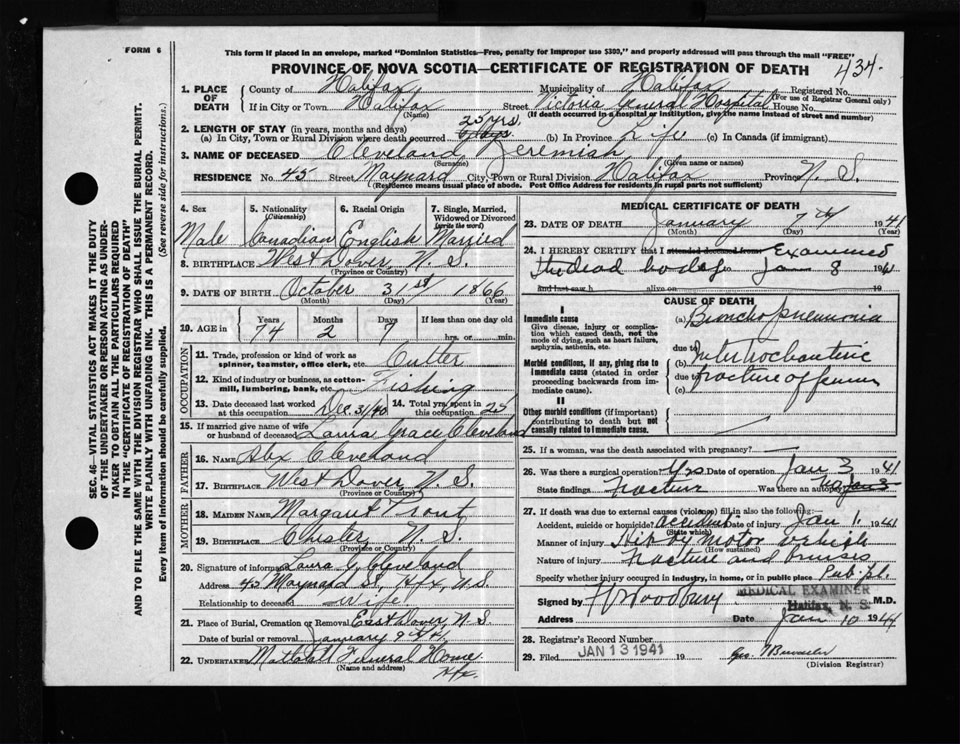 FORM 6
This form if placed in an envelope, marked "Dominion Statistics—Free, penalty for improper use $300," and properly addressed will pass through the mail "FREE"
PROVINCE OF NOVA SCOTIA—CERTIFICATE OF REGISTRATION OF DEATH 434.
1. PLACE OF DEATH County of Halifax Municipality of Halifax Registered No.
(For use of Registrar General only)
If in City or Town Halifax Street Victoria General Hospital House No.
(Name) (If death occurred in a hospital or institution, give the name instead of street and number)
2. LENGTH OF STAY (in years, months and days) 25 yrs
(a) In City, Town or Rural Division where death occurred (b) In Province Life (c) In Canada (if immigrant)
3. NAME OF DECEASED Cleveland Jeremiah
(Surname) (Given name or names)
RESIDENCE No. 45 Street Maynard City, Town or Rural Division Halifax Province N. S.
(Residence means usual place of abode. Post Office Address for residents in rural parts not sufficient)
4. Sex Male
5. Nationality (Citizenship) Canadian
6. Racial Origin English
7. Single, Married, Widowed or Divorced (write the word) Married
8. BIRTHPLACE West Dover, N. S.
(Province or Country)
9. DATE OF BIRTH October 31st 1866
(Month) (Day) (Year)
10. AGE in Years Months Days If less than one day old
74 2 7 hrs. or min.
OCCUPATION
11. Trade, profession or kind of work as spinner, teamster, office clerk, etc. Cutter
12. Kind of industry or business, as cotton-mill, lumbering, bank, etc. Fishing
13. Date deceased last worked at this occupation Dec. 31/40 14. Total yrs. spent in this occupation 25
15. If married give name of wife or husband of deceased Laura Grace Cleveland
FATHER
16. NAME Alex Cleveland
17. BIRTHPLACE West Dover, N. S.
(Province or Country)
MOTHER
18. MAIDEN NAME Margaret Trout
19. BIRTHPLACE Chester, N. S.
(Province or Country)
20. Signature of informant Laura G. Cleveland
Address 45 Maynard St., Hfx, N.S.
Relationship to deceased wife
21. Place of Burial, Cremation or Removal East Dover, N. S.
Date of burial or removal January 9th 41
22. UNDERTAKER Funeral Home
(Name and address) Hfx.
MEDICAL CERTIFICATE OF DEATH
23. DATE OF DEATH January 7th 1941
(Month) (Day) (Year)
24. I HEREBY CERTIFY that I attended deceased from Examined
the dead body to Jan 8 1941
and last saw h alive on 19
CAUSE OF DEATH
I
Immediate cause
Give disease, injury or complication which caused death, not the mode of dying, such as heart failure, asphyxia, asthenia, etc.
(a) Bronchopneumonia
due to
Morbid conditions, if any, giving rise to immediate cause (stated in order proceeding backwards from immediate cause).
(b) Intertrochanteric
due to fracture of femur
(c)
II
Other morbid conditions (if important) contributing to death but not causally related to immediate cause.
25. If a woman, was the death associated with pregnancy?
26. Was there a surgical operation? Yes Date of operation Jan 3 1941
State findings Fracture Was there an autopsy?
27. If death was due to external causes (violence) fill in also the following:
Accident, suicide or homicide? accident Date of injury Jan 1. 1941
(State which)
Manner of injury Hit by motor vehicle
(How sustained)
Nature of injury Fracture and bruises
Specify whether injury occurred in industry, in home, or in public place Pub. pl.
Signed by HWoodbury MEDICAL EXAMINER M.D.
Halifax, N. S.
Address Date Jan 10 1941
28. Registrar's Record Number
29. Filed JAN 13 1941 19 Geo.
(Division Registrar)
SEC. 46—VITAL STATISTICS ACT MAKES IT THE DUTY
OF THE UNDERTAKER OR PERSON ACTING AS UNDER-
TAKER TO OBTAIN ALL THE PARTICULARS REQUIRED
IN THE "CERTIFICATE OF REGISTRATION OF DEATH"
AND TO FILE THE SAME WITH THE DIVISION REGISTRAR WHO SHALL ISSUE THE BURIAL PERMIT.
WRITE PLAINLY WITH UNFADING INK. THIS IS A PERMANENT RECORD.
Every item of information should be carefully supplied. (See reverse side for instructions.)